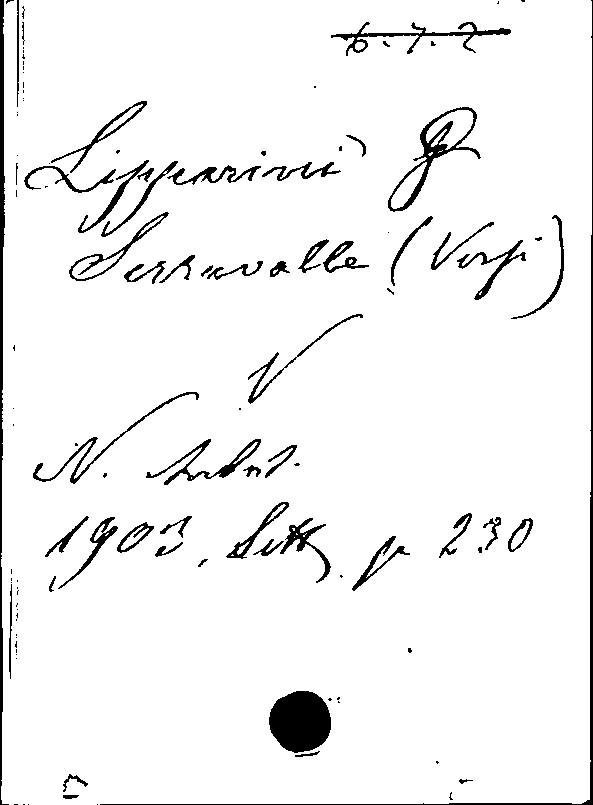 6.7.2
Lipparini G
Serravalle (Versi)
V
N. Antol.
1903, Sett. p 230